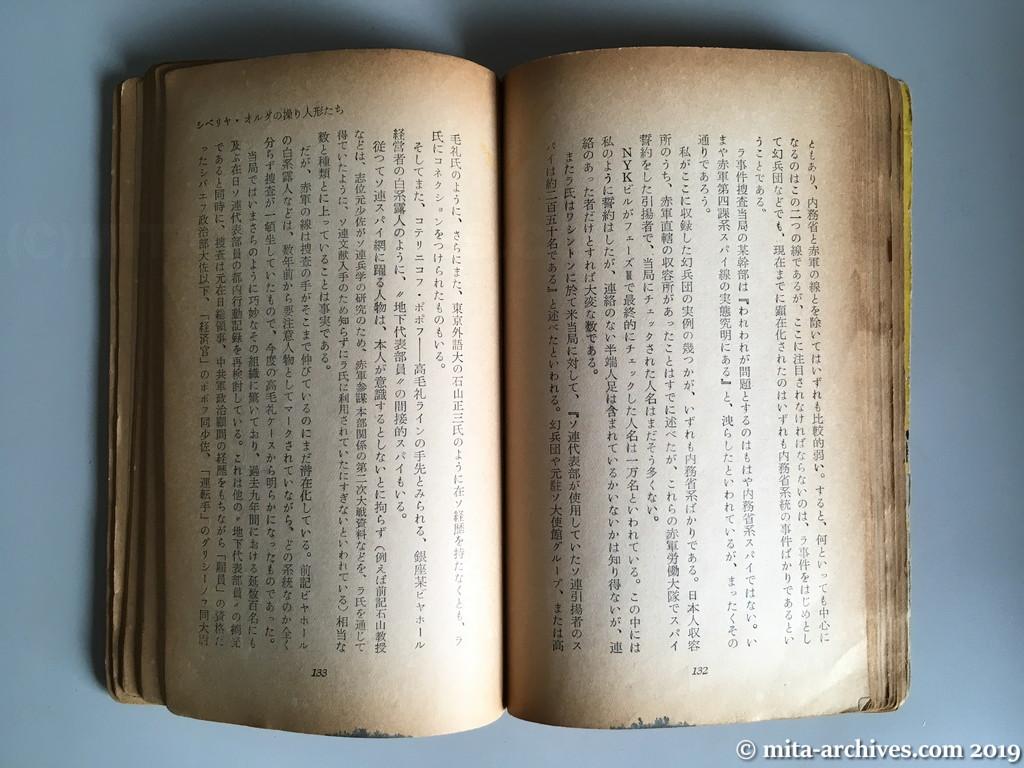 ともあり、内務省と赤軍の線とを除いてはいずれも比較的弱い。すると、何といっても中心に
なるのはこの二つの線であるが、ここに注目されなければならないのは、ラ事件をはじめとし
て幻兵団などでも、現在までに顕在化されたのはいずれも内務省系統の事件ばかりであるとい
うことである。
ラ事件捜査当局の某幹部は『われわれが問題とするのはもはや内務省系スパイではない。い
まや赤軍第四課系スパイ線の実態究明にある』と、洩らしたといわれているが、まったくその
通りであろう。
私がここに収録した幻兵団の実例の幾つかが、いずれも内務省系ばかりである。日本人収容
所のうち、赤軍直轄の収容所があったことはすでに述べたが、これらの赤軍労働大隊でスパイ
誓約をした引揚者で、当局にチェックされた人名はまだそう多くない。
NYKビルがフェーズⅢで最終的にチェックした人名は一万名といわれている。この中には
私のように誓約はしたが、連絡のない半端人足は含まれているかいないかは知り得ないが、連
絡のあった者だけとすれば大変な数である。
またラ氏はワシントンに於て米当局に対して、『ソ連代表部が使用していたソ連引揚者のス
パイは約二百五十名である』と述べたといわれる。幻兵団や元駐ソ大使館グループ、または高
132
シベリヤ・オルグの操り人形たち
毛礼氏のように、さらにまた、東京外語大の石山正三氏のように在ソ経歴を持たなくとも、ラ
氏にコネクションをつけられたものもいる。
そしてまた、コテリニコフ・ポポフ――高毛礼ラインの手先とみられる、銀座某ビヤホール
経営者の白系露人のように、〝地下代表部員〟の間接的スパイもいる。
従ってソ連スパイ網に躍る人物は、本人が意識するとしないとに拘らず(例えば前記石山教授
などは、志位元少佐がソ連兵学の研究のため、赤軍参謀本部関係の第二次大戦資料などを、ラ氏を通じて
得ていたように、ソ連文献入手のため知らずにラ氏に利用されていたにすぎないといわれている)相当な
数と種類とに上っていることは事実である。
だが、赤軍の線は捜査の手がそこまで伸びているのにまだ潜在化している。前記ビヤホール
の白系露人などは、数年前から要注意人物としてマークされていながら、どの系統なのか全く
分らず捜査が一頓坐していたもので、今度の高毛礼ケースから明らかになったものであった。
当局ではいまさらのように巧妙なその組織に驚いており、過去九年間における延数百名にも
及ぶ在日ソ連代表部員の都内行動記録を再検討している。これは他の〝地下代表部員〟の摘発
であると同時に、捜査は元在日総領事、中共軍政治顧問の経歴をもちながら「雇員」の資格だ
ったシバエフ政治部大佐以下、「経済官」のポポフ同少佐、「運転手」のグリシーノフ同大尉
133
© mita-archives.com 2019